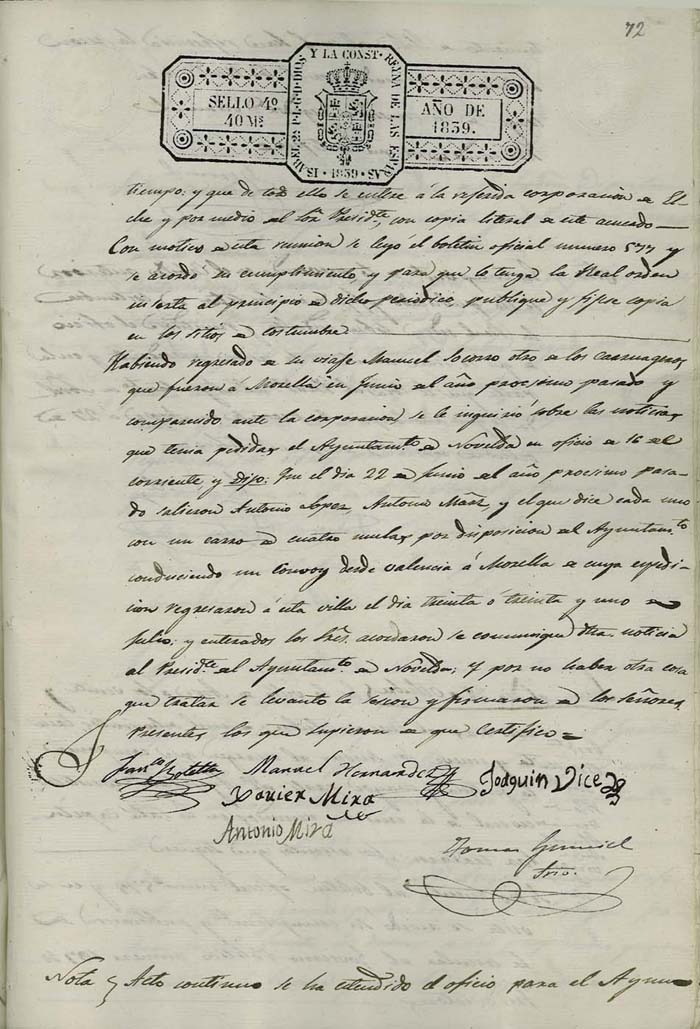 72
ISABEL 2ª P. L. G. D. DIOS Y LA CONST. REINA DE LAS ESPAS
1839
SELLO 4º
40 Ms
AÑO DE
1839.
tiempo; y que de todo ello se entere á la referida corporacion de El-
che y por medio del Sor. Presidte. con copia literal de este acuerdo
Con motivo de esta reunion se leyó el boletin oficial numero 577 y
se acordo su cumplimiento y para que lo tenga la Real orden
inserta al principio de dicho periodico, publique y fijese copia
en los sitios de costumbre
Habiendo regresado de su viaje Manuel Socorro otro de los carruageros
que fueron á Morella en Junio del año procsimo pasado y
comparecido ante la corporacion se le inquirió sobre las noticias
que tenia pedidas el Ayuntamto. de Novelda en oficio de 16 del
corriente, y dijo; Que el dia 22 de Junio del año procsimo pasa-
do salieron Antonio Lopez, Antonio Mārz, y el que dice cada uno
con un carro de cuatro mulas por disposicion del Ayuntamto.
conduciendo un Convoy desde Valencia á Morella de cuya espedi-
cion regresaron á esta villa el dia treinta ó treinta y uno de
Julio; y enterados los Sres. acordaron se comunique dha. noticia
al Presidte. del Ayuntamto. de Novelda; Y por no haber otra cosa
que tratar se levanto la sesion y firmaron de los señores
Presentes los que supieron de que Certifico =
Franco Botella Manuel Hernandez Joaquin Vicedo
Xavier Mira
Antonio Mira
Tomas
Srio.
Nota Acto continuo se ha estendido el oficio para el Ayun